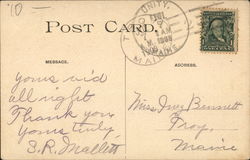 '10 —
UNITY,
POST CARD.
AM
MAINE
MESSAGE.
ADDRESS.
yours rec'd
all right
Thank you
Yours truly,
S. R. Mallett
Miss Inez Bennett
Troy,
Maine